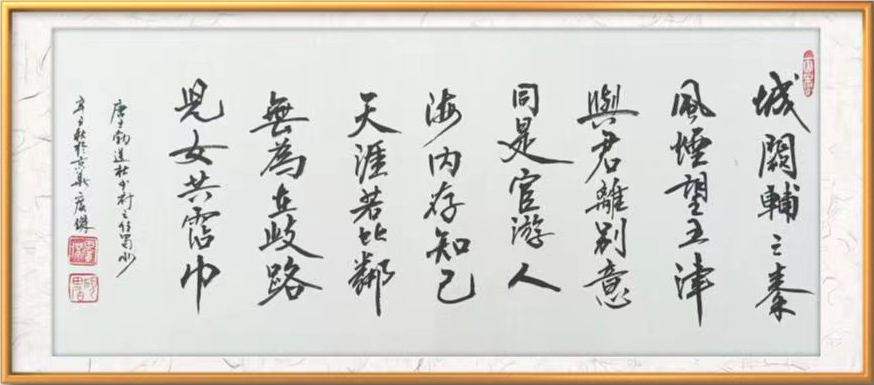 城闕輔三秦
風煙望五津
與君離別意
同是宦游人
海内存知己
天涯若比鄰
無為在歧路
兒女共霑巾
唐王勃送杜少府之任蜀州
辛丑秋於京華